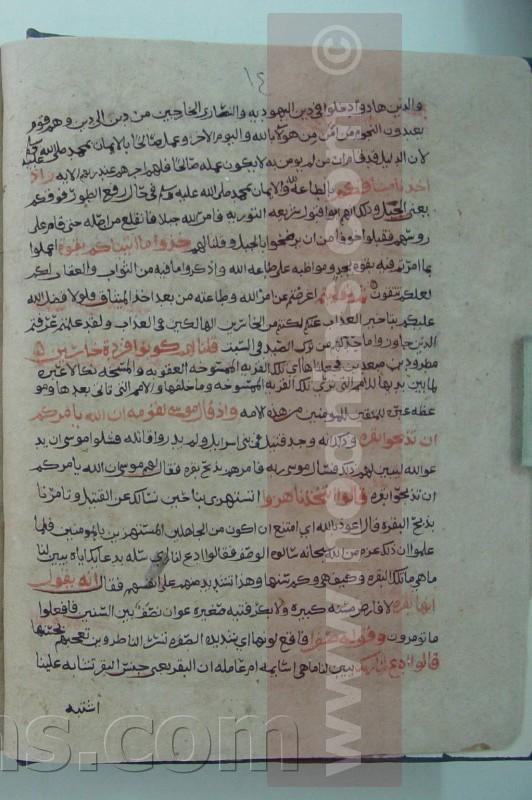 ١٤
والذين هادوا دخلوا في دين اليهودية والنصارى الخارجين من دين الى دين وهم قوم
يعبدون النجوم من امن من هولا بالله واليوم الاخر وعمل صالحا بالايمان بمحمد صلى الله عليه
لان الدليل قد قام ان من لم يومن به لا يكون عمله صالحا فلهم اجرهم عند ربهم الايه واذ
اخذنا ميثاقكم بالطاعة لله والايمان بمحمد صلى الله عليه وسلم في حال رفع الطور فوقكم
يعني الجبل وذلك انهم ابوا قبول شريعه التوريه فامر الله جبلا فانقلع من اصله حتى قام على
روسهم فقبلوا خوفا من ان يرضخوا بالجبل وقلنا لهم خذوا ما اتيناكم بقوة اعملوا
بما امرتم فيه بقوة بجد ومواظبه على طاعه الله واذكروا ما فيه من الثواب والعقاب لكم
لعلكم تتقون ثم توليتم اعرضتم عن امر الله وطاعته من بعد اخذ الميثاق فلولا فضل الله
عليكم بتاخير العذاب عنكم لكنتم من الخاسرين الهالكين في العذاب ولقد علمتم عرفتم
الذين جاوزوا ما حد لهم من ترك الصيد في السبت فقلنا لهم كونوا قردة خاسئين
مطرودين مبعدين فجعلناها اي تلك القريه الممسوخه العقوبه والمسخه نكالا عبرة
لما بين يديها للامم التي ترى تلك القرية الممسوخه وما خلفها والامم التي تاتي بعدها ومو
عظه عبرة للمتقين للمومنين من هذه الامه واذ قال موسى لقومه ان الله يامركم
ان تذبحوا بقرة وذلك انه وجد قتيل في بني اسرايل ولم يدروا قاتله فسلوا موسى ان يد
عو الله ليبين لهم ذلك فسال موسى ربه فامرهم بذبح بقره فقال لهم موسى ان الله يامركم
ان تذبحوا بقره قالوا اتتخذنا هزوا اتستهزي بنا حين نسالك عن القتيل وتامرنا
بذبح البقره قال اعوذ بالله اي امتنع ان اكون من الجاهلين المستهزين بالمومنين فلما
علموا ان ذلك عزم من الله سبحانه سالوه الوصف فقالوا ادع لنا ربك اي سله بدعايك اياه يبين لنا
ما هي ما تلك البقره وكيف هي وكم سنها وهذا تشديد منهم على انفسهم فقال انه يقول
انها بقرة لا فارض مسنه كبيره ولا بكر فتيه صغيره عوان نصف بين السنين فافعلوا
ما تومرون وقوله صفرا فاقع لونها اي شديدة الصفره تسر الناظرين تعجبهم بحسنها
قالوا ادع لنا ربك يبين لنا ما هي اسايمه ام عامله ان البقر يعني جنس البقر تشابه علينا
اشتبه
© www.mochms.com